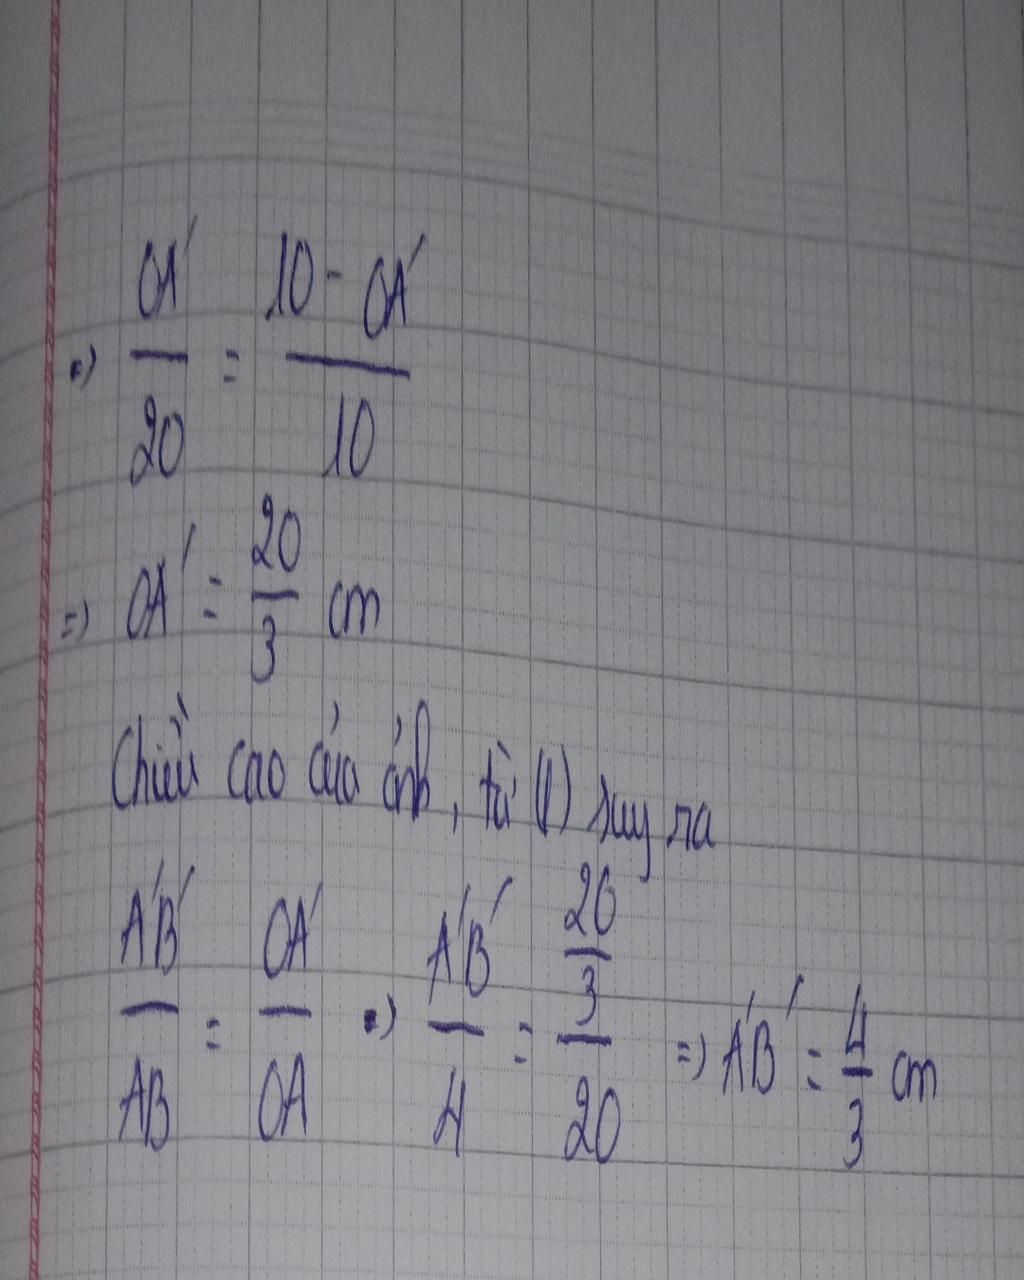 => OA'/20 = (10 - OA')/10
=> OA' = 20/3 cm
Chiều cao của ảnh, từ (1) suy ra
A'B'/AB = OA'/OA => A'B'/4 = (20/3)/20 => A'B' = 4/3 cm